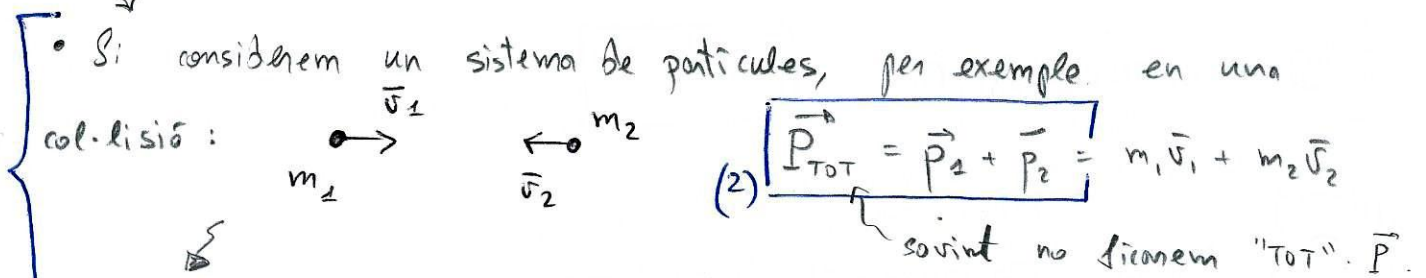 • Si considerem un sistema de partícules, per exemple en una
col·lisió: m₁ v̄₁ v̄₂ m₂ (2) P⃗_TOT = p⃗₁ + p̄₂ = m₁v̄₁ + m₂v̄₂
sovint no ficarem "TOT". P⃗.